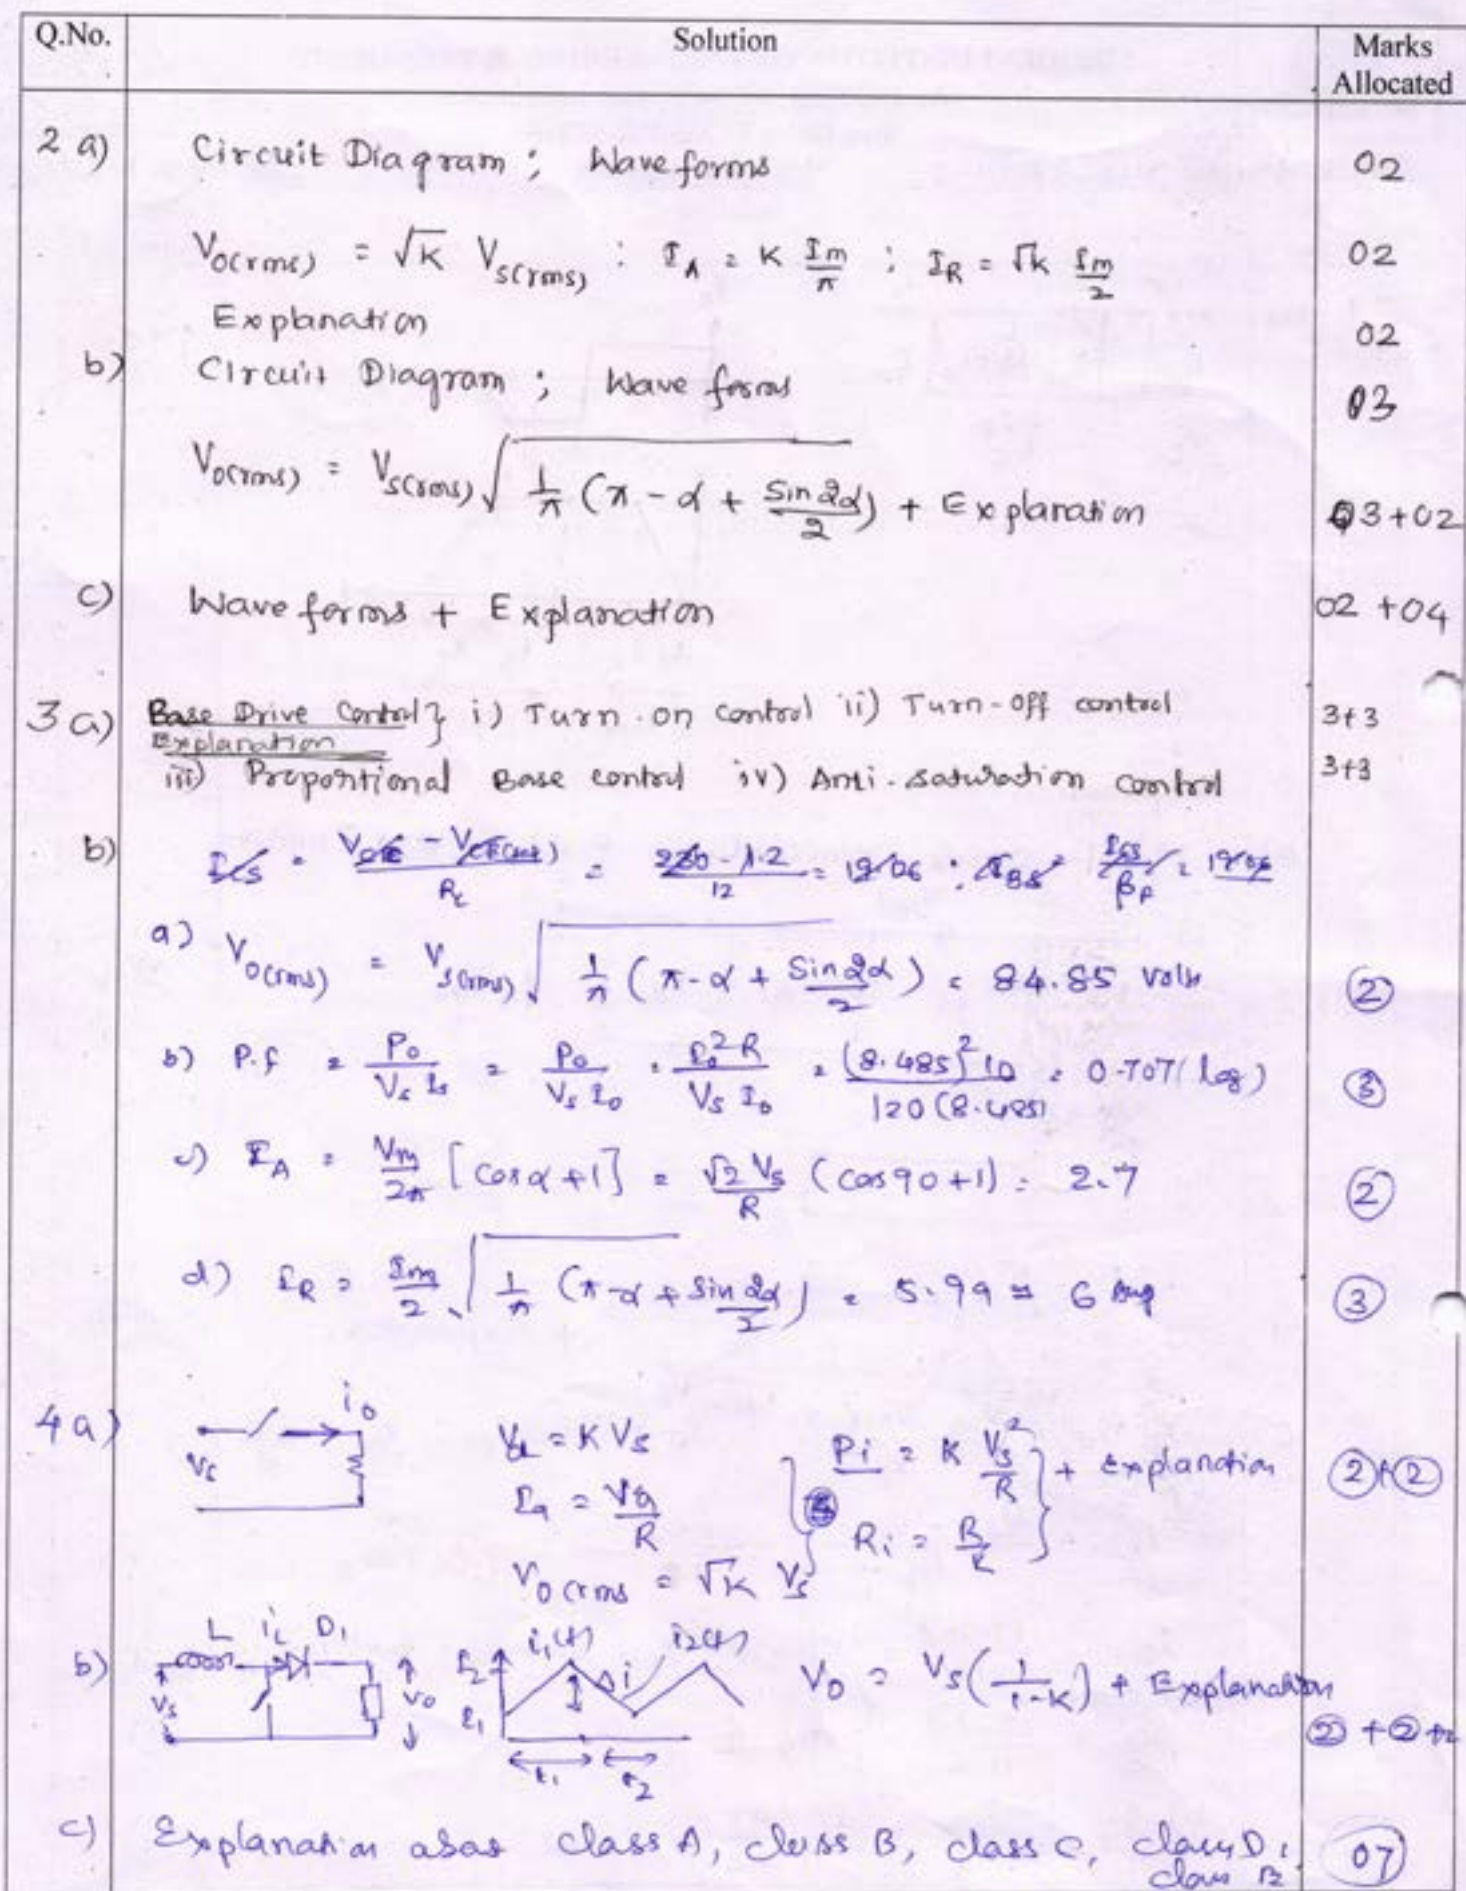 Q.No. Solution Marks Allocated
2 a) Circuit Diagram ; Wave forms 02
V0(rms) = √K Vs(rms) : IA = K Im/π ; IR = √k Im/2 02
Explanation 02
b) Circuit Diagram ; Wave forms 03
V0(rms) = Vs(rms) √ 1/π (π - α + Sin2α/2) + Explanation 03+02
c) Wave forms + Explanation 02 +04
3 a) Base Drive Control } i) Turn-on control ii) Turn-off control 3+3
Explanation
iii) Proportional Base control iv) Anti-saturation control 3+3
b) = /RC = /12 = : = /βF =
a) V0(rms) = Vs(rms) √ 1/π (π-α + Sin2α/2) = 84.85 Volts 2
b) P.f = P0/Vs Is = P0/Vs I0 = I0²R/Vs I0 = (8.485)² 10/120 (8.485) = 0.707 (lag) 3
c) IA = Vm/2π [cosα +1] = √2 Vs/R (cos90+1) = 2.7 2
d) IR = Im/2 √ 1/π (π-α + Sin 2α/2) = 5.99 ≈ 6 Amp 3
4 a) i0 Vs Va = K Vs Pi = K Vs²/R } + Explanation 2+2
Ia = Va/R
Ri = R/K
V0(rms = √K Vs
b) L iL D1 Vs V0 I2 I1 i1(t) Δi i2(t) t1 t2 V0 = Vs(1/1-K) + Explanation
2 + 2 +2
c) Explanation class A, class B, class C, class D, 07
class